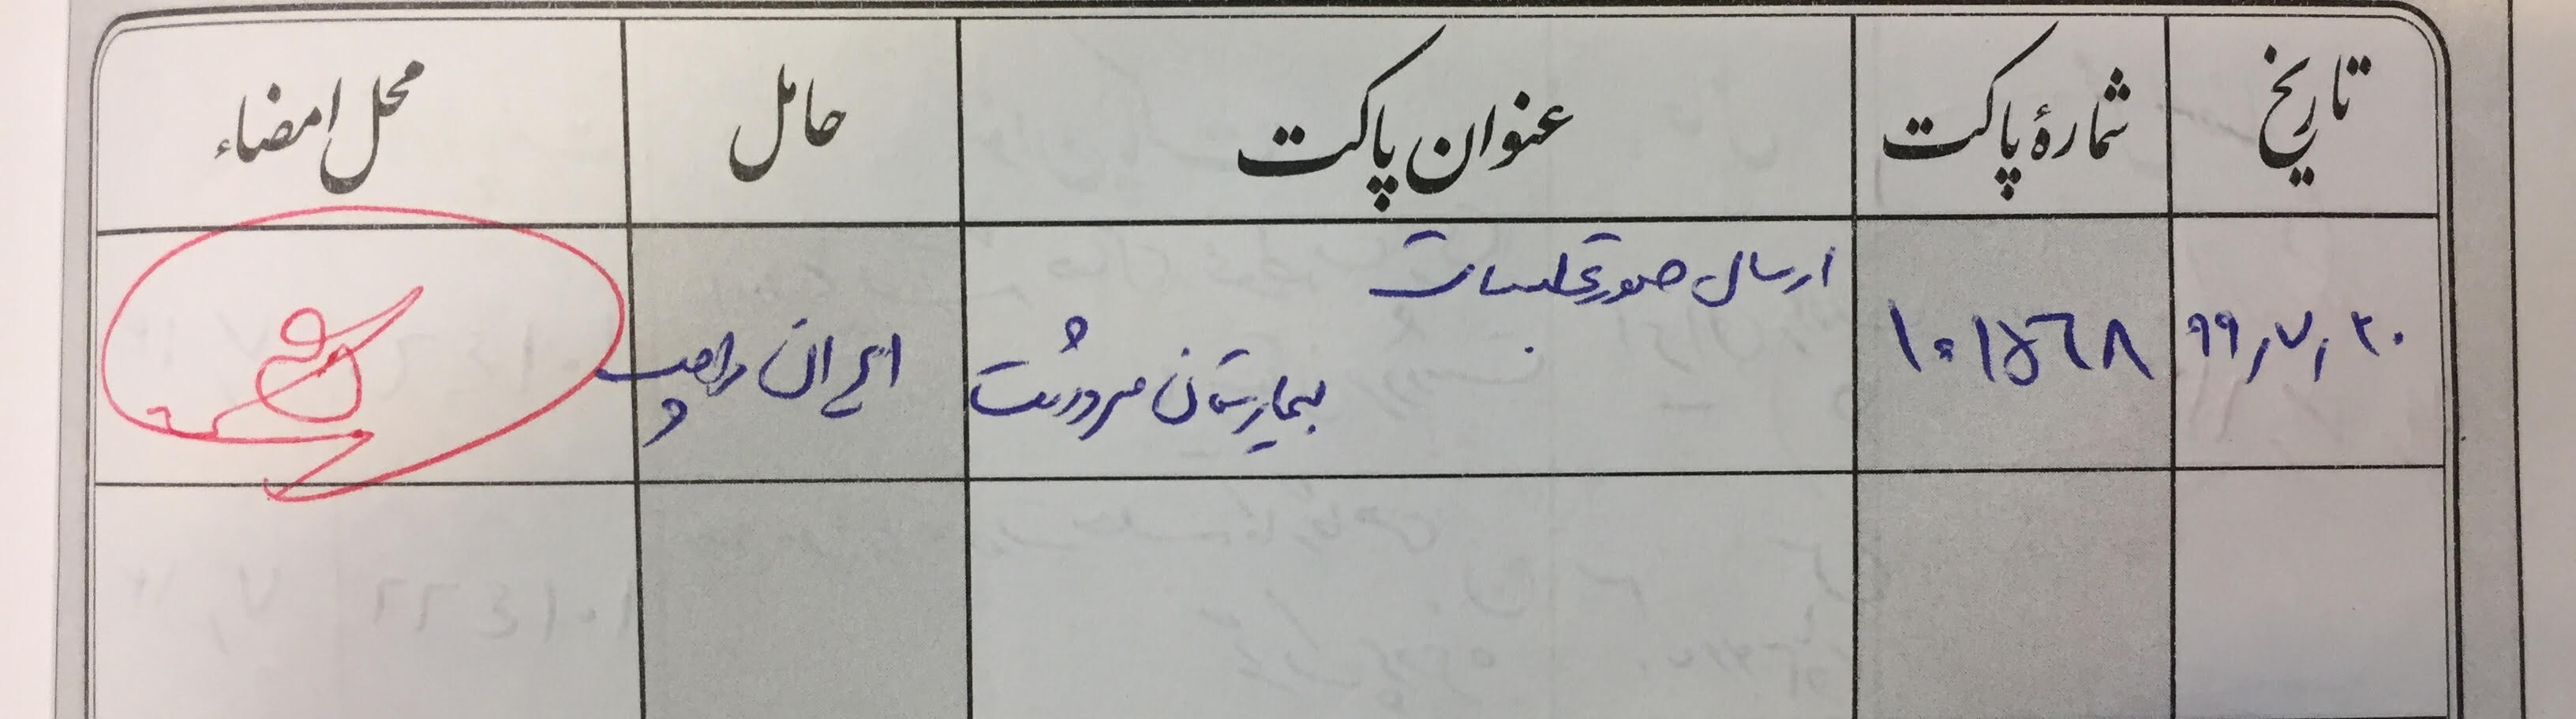 تاریخ شمارهٔ پاکت عنوان پاکت حامل محل امضاء
ارسال صورتجلسات
۹۹,۷,۲۰ ۱۰۱۵۶۸ بیمارستان مرودشت ایران